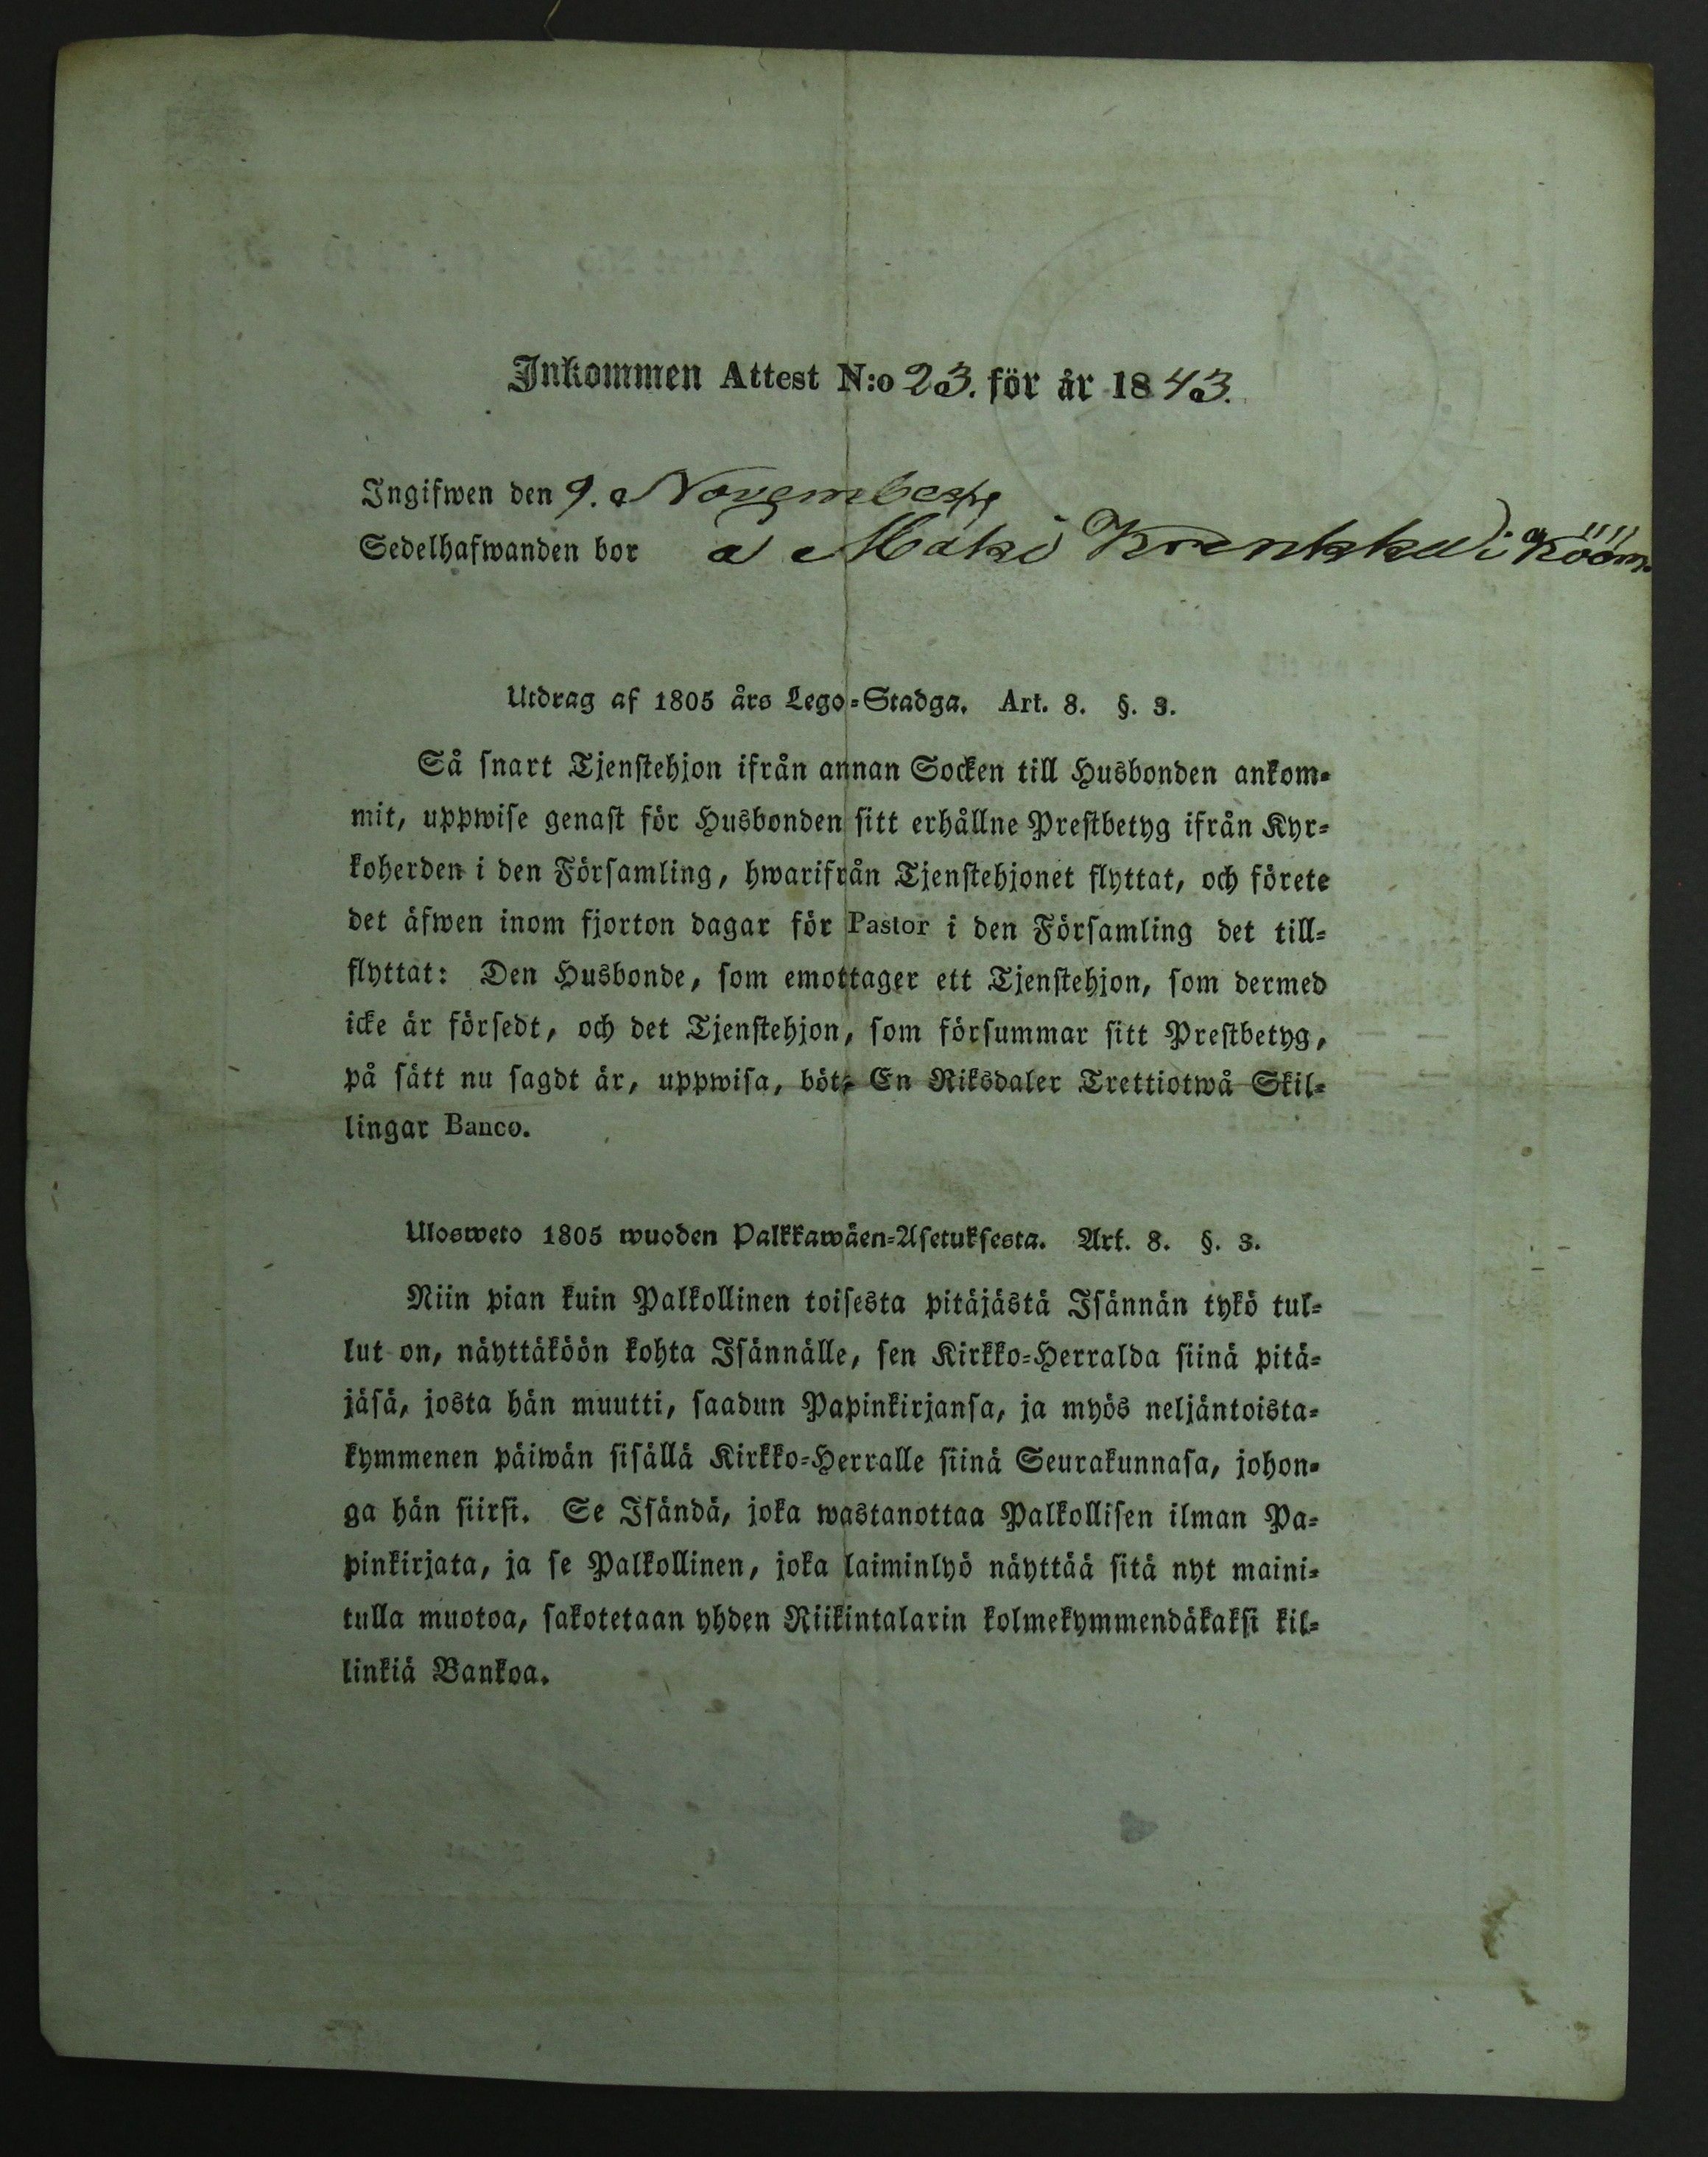 Inkommen Attest N:o 23. för år 1843.
Ingifwen den 9. November
Sedelhafwanden bor å Mäki i
Utdrag af 1805 års Lego-Stadga. Art. 8. §. 3.
Så snart Tjenstehjon ifrån annan Socken till Husbonden ankom-
mit, uppwise genast för Husbonden sitt erhållne Prestbetyg ifrån Kyr-
koherden i den Församling, hwarifrån Tjenstehjonet flyttat, och förete
det äfwen inom fjorton dagar för Pastor i den Församling det till-
flyttat: Den Husbonde, som emottager ett Tjenstehjon, som dermed
icke är försedt, och det Tjenstehjon, som försummar sitt Prestbetyg,
på sätt nu sagdt är, uppwisa, böte En Riksdaler Trettiotwå Skil-
lingar Banco.
Ulosweto 1805 wuoden Palkkawäen-Asetuksesta. Art. 8. §. 3.
Niin pian kuin Palkollinen toisesta pitäjästä Isännän tykö tul-
lut on, näyttäköön kohta Isännälle, sen Kirkko-Herralda siinä pitä-
jäsä, josta hän muutti, saadun Papinkirjansa, ja myös neljäntoista-
kymmenen päiwän sisällä Kirkko-Herralle siinä Seurakunnasa, johon-
ga hän siirsi. Se Isändä, joka wastanottaa Palkollisen ilman Pa-
pinkirjata, ja se Palkollinen, joka laiminlyö näyttää sitä nyt maini-
tulla muotoa, sakotetaan yhden Riikintalarin kolmekymmendäkaksi kil-
linkiä Bankoa.